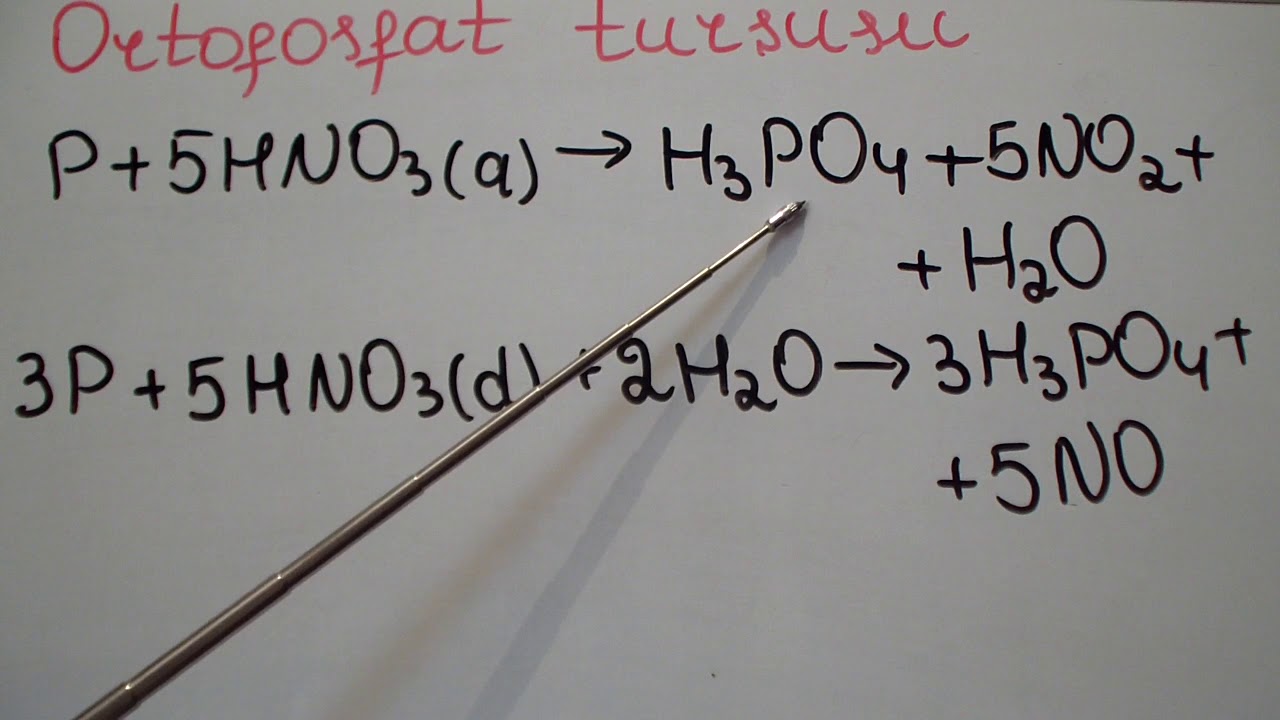 Ortofosfat turşusu
P + 5HNO₃(a) → H₃PO₄ + 5NO₂ +
+ H₂O
3P + 5HNO₃(d) + 2H₂O → 3H₃PO₄ +
+ 5NO